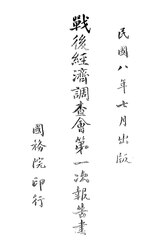 民國八年七月出版
戰後經濟調查會第一次報告書
國務院印行